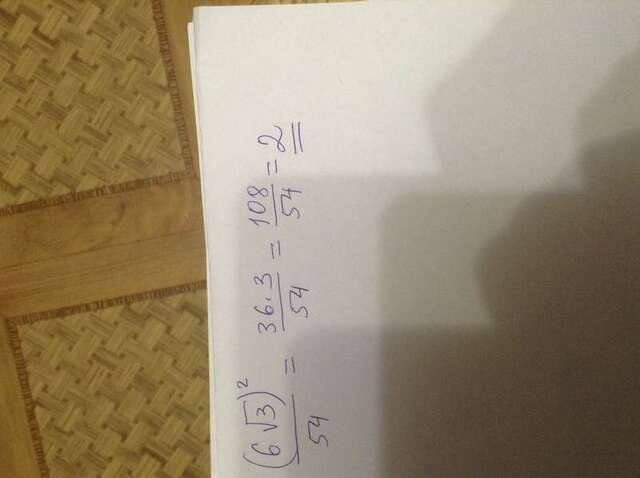 (6√3)²/54 = 36.3/54 = 108/54 = 2